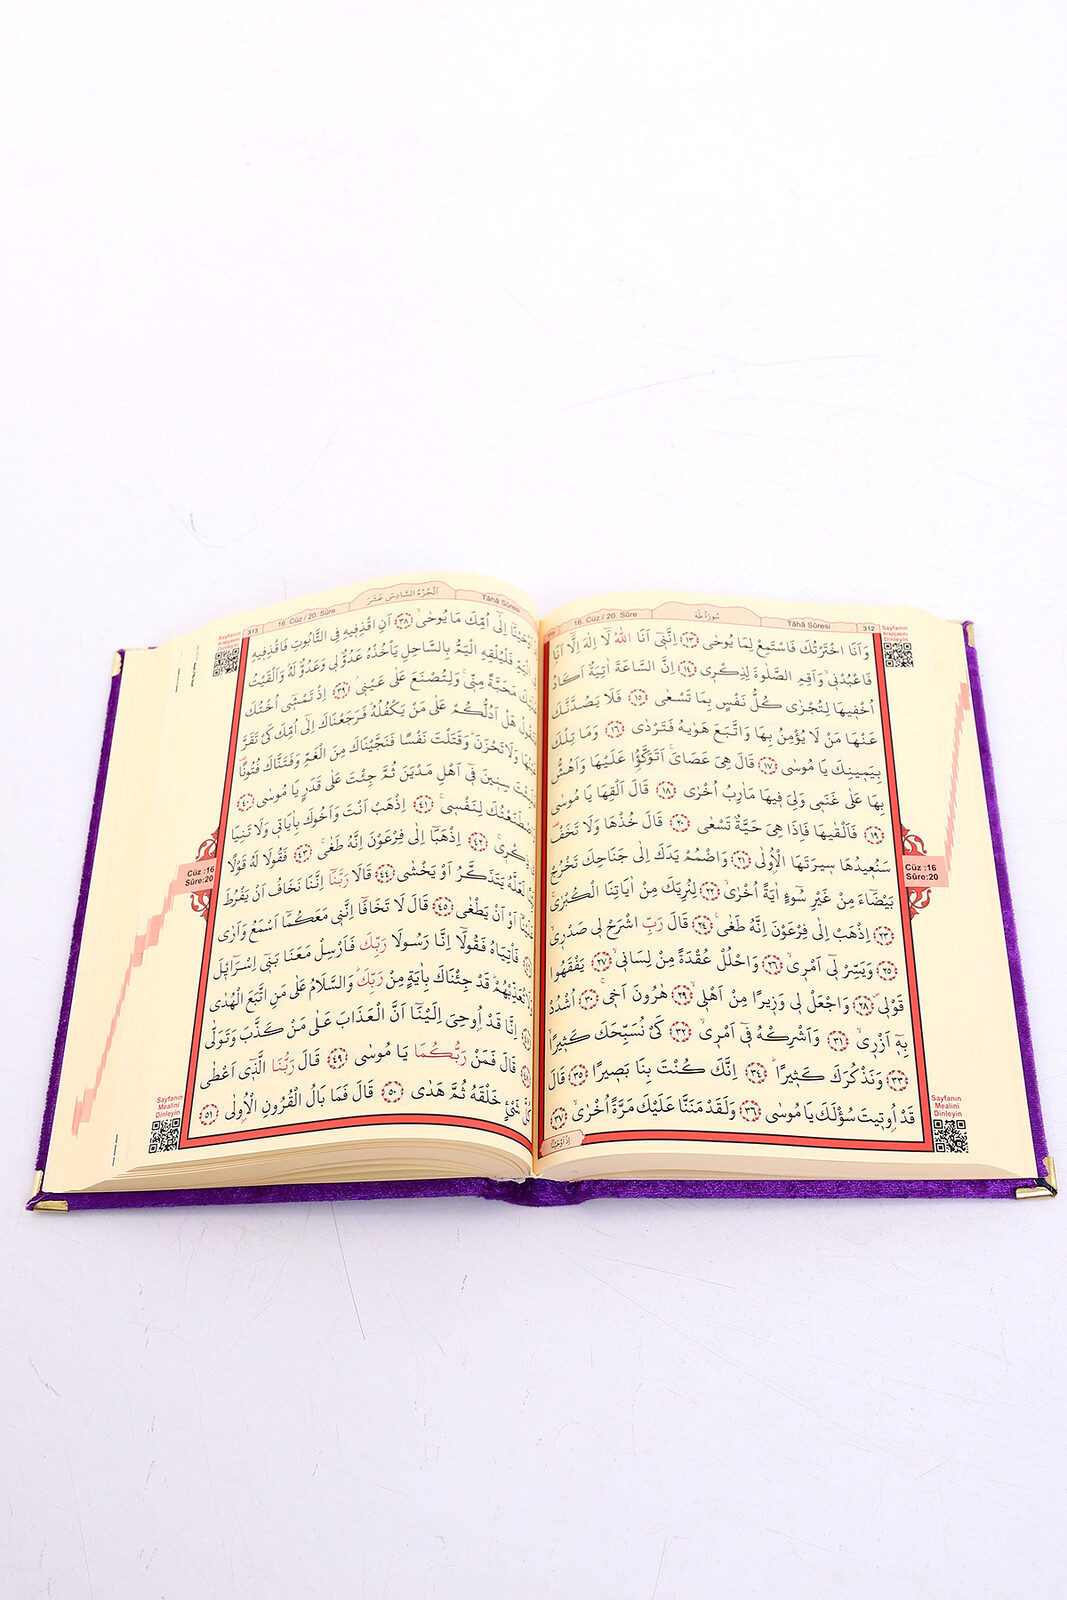 16. Cüz / 20. Sûre سُورَةُ طٰهٰ Tâhâ Sûresi 312
Sayfanın
Arapçasını
Dinleyin
وَاَنَا اخْتَرْتُكَ فَاسْتَمِعْ لِمَا يُوحٰى ﴿١٣﴾ اِنَّنٖٓى اَنَا اللّٰهُ لَٓا اِلٰهَ اِلَّٓا اَنَا۬
فَاعْبُدْنٖى وَاَقِمِ الصَّلٰوةَ لِذِكْرٖى ﴿١٤﴾ اِنَّ السَّاعَةَ اٰتِيَةٌ اَكَادُ
اُخْفٖيهَا لِتُجْزٰى كُلُّ نَفْسٍ بِمَا تَسْعٰى ﴿١٥﴾ فَلَا يَصُدَّنَّكَ
عَنْهَا مَنْ لَا يُؤْمِنُ بِهَا وَاتَّبَعَ هَوٰيهُ فَتَرْدٰى ﴿١٦﴾ وَمَا تِلْكَ
بِيَمٖينِكَ يَا مُوسٰى ﴿١٧﴾ قَالَ هِىَ عَصَاىَ اَتَوَكَّؤُ۬ا عَلَيْهَا وَاَهُشُّ
بِهَا عَلٰى غَنَمٖى وَلِىَ فٖيهَا مَاٰرِبُ اُخْرٰى ﴿١٨﴾ قَالَ اَلْقِهَا يَا مُوسٰى
﴿١٩﴾ فَاَلْقٰيهَا فَاِذَا هِىَ حَيَّةٌ تَسْعٰى ﴿٢٠﴾ قَالَ خُذْهَا وَلَا تَخَفْ
سَنُعٖيدُهَا سٖيرَتَهَا الْاُو۫لٰى ﴿٢١﴾ وَاضْمُمْ يَدَكَ اِلٰى جَنَاحِكَ تَخْرُجْ
بَيْضَٓاءَ مِنْ غَيْرِ سُٓوءٍ اٰيَةً اُخْرٰى ﴿٢٢﴾ لِنُرِيَكَ مِنْ اٰيَاتِنَا الْكُبْرٰى
﴿٢٣﴾ اِذْهَبْ اِلٰى فِرْعَوْنَ اِنَّهُ طَغٰى ﴿٢٤﴾ قَالَ رَبِّ اشْرَحْ لٖى صَدْرٖى
﴿٢٥﴾ وَيَسِّرْ لٖٓى اَمْرٖى ﴿٢٦﴾ وَاحْلُلْ عُقْدَةً مِنْ لِسَانٖى ﴿٢٧﴾ يَفْقَهُوا
قَوْلٖى ﴿٢٨﴾ وَاجْعَلْ لٖى وَزٖيرًا مِنْ اَهْلٖى ﴿٢٩﴾ هٰرُونَ اَخٖى ﴿٣٠﴾ اُشْدُدْ
بِهٖٓ اَزْرٖى ﴿٣١﴾ وَاَشْرِكْهُ فٖٓى اَمْرٖى ﴿٣٢﴾ كَىْ نُسَبِّحَكَ كَثٖيرًا
﴿٣٣﴾ وَنَذْكُرَكَ كَثٖيرًا ﴿٣٤﴾ اِنَّكَ كُنْتَ بِنَا بَصٖيرًا ﴿٣٥﴾ قَالَ
قَدْ اُو۫تٖيتَ سُؤْلَكَ يَا مُوسٰى ﴿٣٦﴾ وَلَقَدْ مَنَنَّا عَلَيْكَ مَرَّةً اُخْرٰى ﴿٣٧﴾
اِذْ اَوْحَيْنَٓا
Cüz :16
Sûre:20
Sayfanın
Mealini
Dinleyin
313 16. Cüz / 20. Sûre اَلْجُزْءُ السَّادِسَ عَشَرَ Tâhâ Sûresi
Sayfanın
Arapçasını
Dinleyin
اِلٰٓى اُمِّكَ مَا يُوحٰى ﴿٣٨﴾ اَنِ اقْذِفٖيهِ فِى التَّابُوتِ فَاقْذِفٖيهِ
فَلْيُلْقِهِ الْيَمُّ بِالسَّاحِلِ يَأْخُذْهُ عَدُوٌّ لٖى وَعَدُوٌّ لَهُ وَاَلْقَيْتُ
مَحَبَّةً مِنّٖى وَلِتُصْنَعَ عَلٰى عَيْنٖى ﴿٣٩﴾ اِذْ تَمْشٖٓى اُخْتُكَ
هَلْ اَدُلُّكُمْ عَلٰى مَنْ يَكْفُلُهُ فَرَجَعْنَاكَ اِلٰٓى اُمِّكَ كَىْ تَقَرَّ
وَلَا تَحْزَنَ وَقَتَلْتَ نَفْسًا فَنَجَّيْنَاكَ مِنَ الْغَمِّ وَفَتَنَّاكَ فُتُونًا
سِنٖينَ فٖٓى اَهْلِ مَدْيَنَ ثُمَّ جِئْتَ عَلٰى قَدَرٍ يَا مُوسٰى ﴿٤٠﴾
لِنَفْسٖى ﴿٤١﴾ اِذْهَبْ اَنْتَ وَاَخُوكَ بِاٰيَاتٖى وَلَا تَنِيَا
ذِكْرٖى ﴿٤٢﴾ اِذْهَبَٓا اِلٰى فِرْعَوْنَ اِنَّهُ طَغٰى ﴿٤٣﴾ فَقُولَا لَهُ قَوْلًا
لَعَلَّهُ يَتَذَكَّرُ اَوْ يَخْشٰى ﴿٤٤﴾ قَالَا رَبَّنَٓا اِنَّنَا نَخَافُ اَنْ يَفْرُطَ
اَوْ اَنْ يَطْغٰى ﴿٤٥﴾ قَالَ لَا تَخَافَٓا اِنَّنٖى مَعَكُمَٓا اَسْمَعُ وَاَرٰى
فَاْتِيَاهُ فَقُولَٓا اِنَّا رَسُولَا رَبِّكَ فَاَرْسِلْ مَعَنَا بَنٖٓى اِسْرَٓائٖلَ
وَلَا تُعَذِّبْهُمْ قَدْ جِئْنَاكَ بِاٰيَةٍ مِنْ رَبِّكَ وَالسَّلَامُ عَلٰى مَنِ اتَّبَعَ الْهُدٰى
اِنَّا قَدْ اُو۫حِىَ اِلَيْنَٓا اَنَّ الْعَذَابَ عَلٰى مَنْ كَذَّبَ وَتَوَلّٰى
قَالَ فَمَنْ رَبُّكُمَا يَا مُوسٰى ﴿٤٩﴾ قَالَ رَبُّنَا الَّذٖٓى اَعْطٰى
كُلَّ شَىْءٍ خَلْقَهُ ثُمَّ هَدٰى ﴿٥٠﴾ قَالَ فَمَا بَالُ الْقُرُونِ الْاُو۫لٰى ﴿٥١﴾
Cüz :16
Sûre:20
Sayfanın
Mealini
Dinleyin